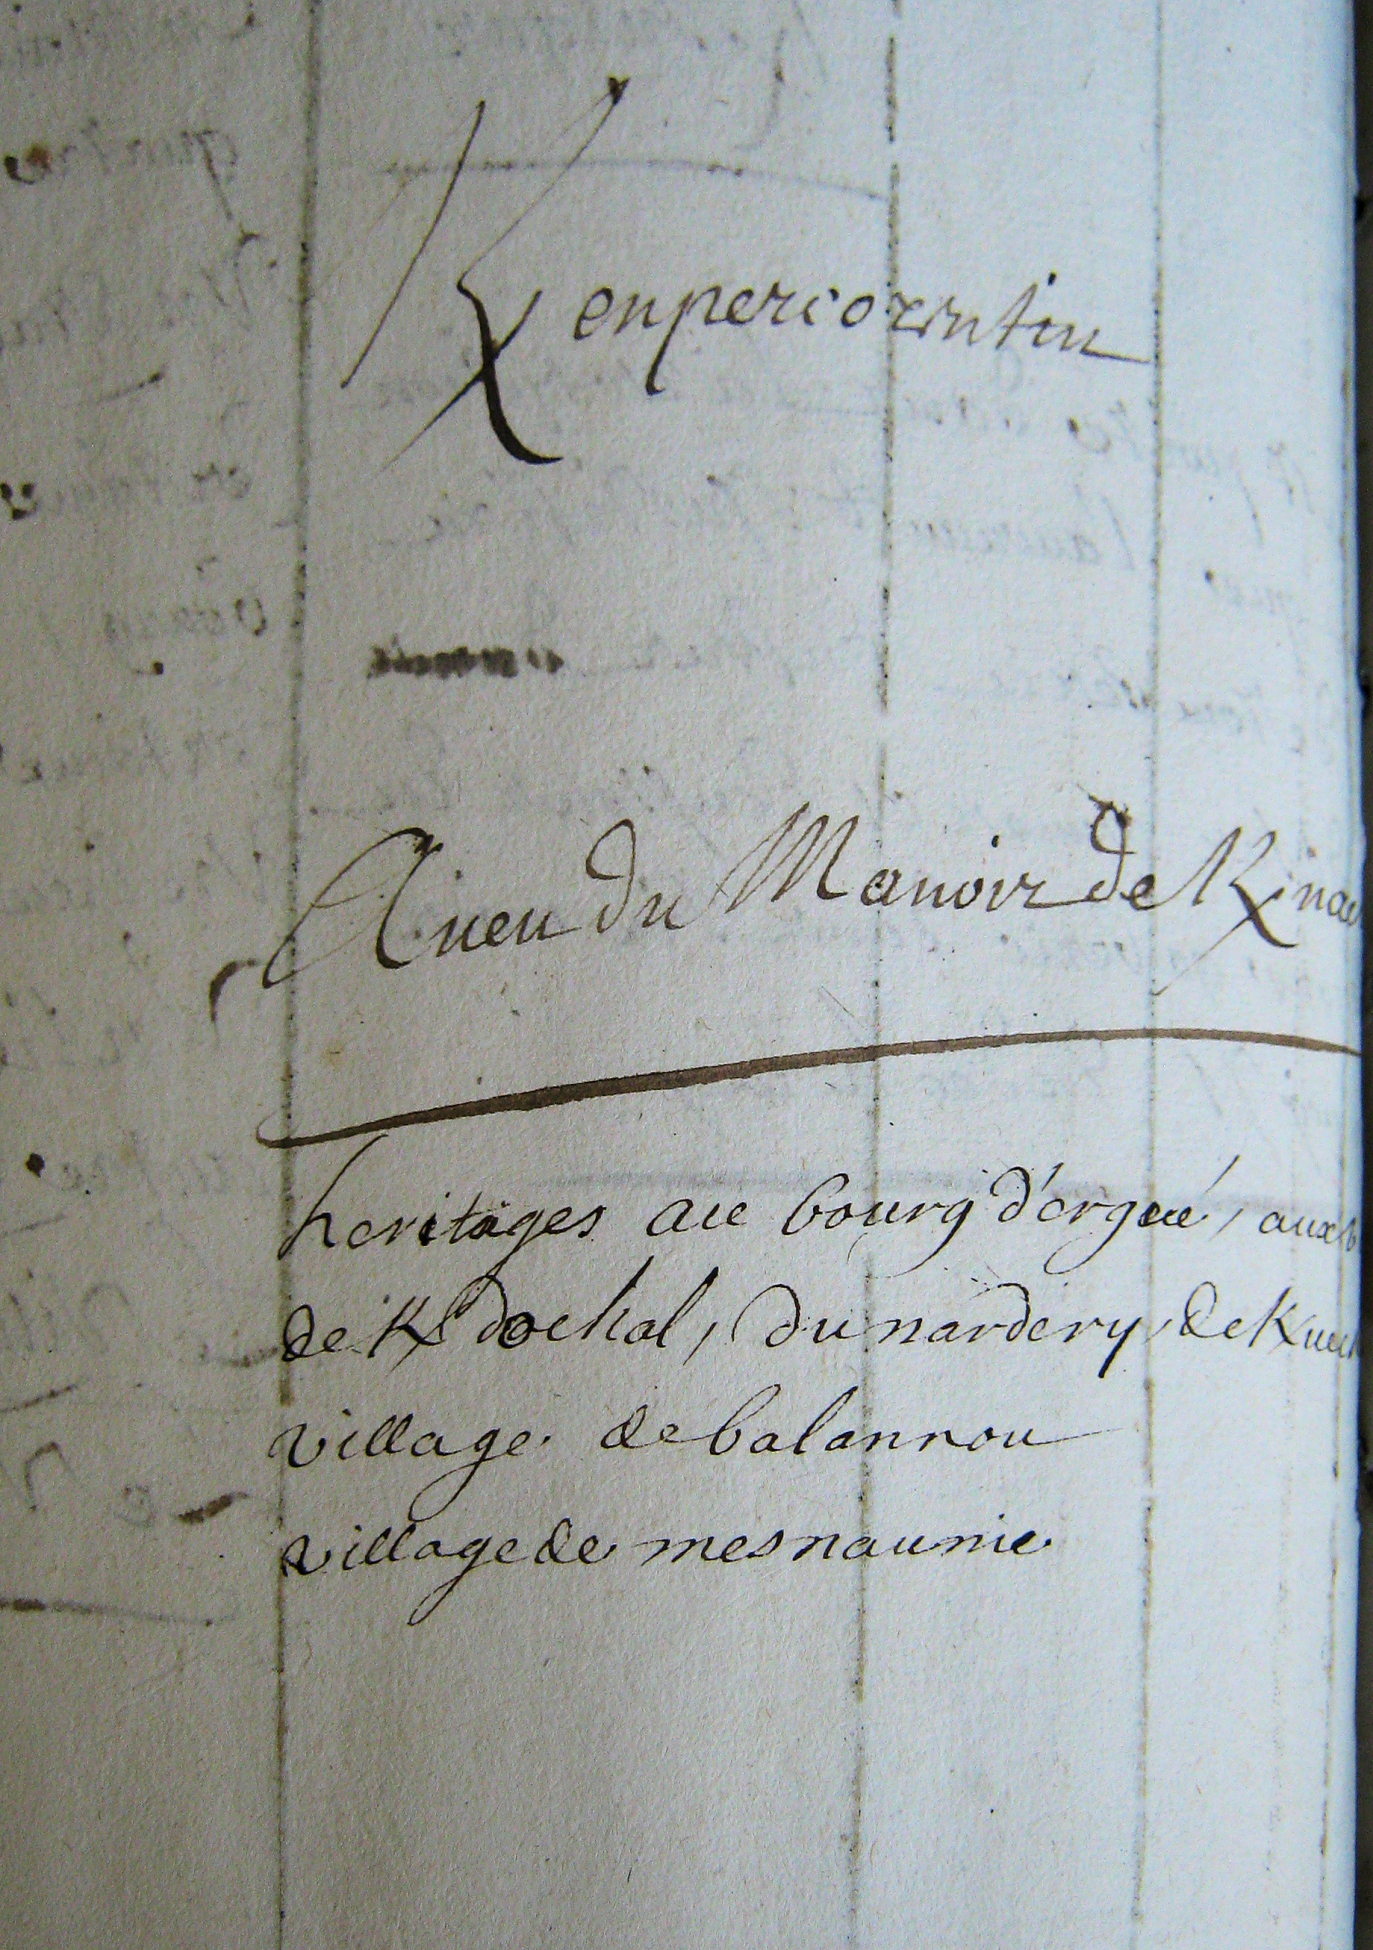 Kenpercorentin
Aueu du Manoir de K/nao
heritages au bourg d'ergué, aux
de K/dochal, du nardery, de K/
village de balannou
village de mesnaunie